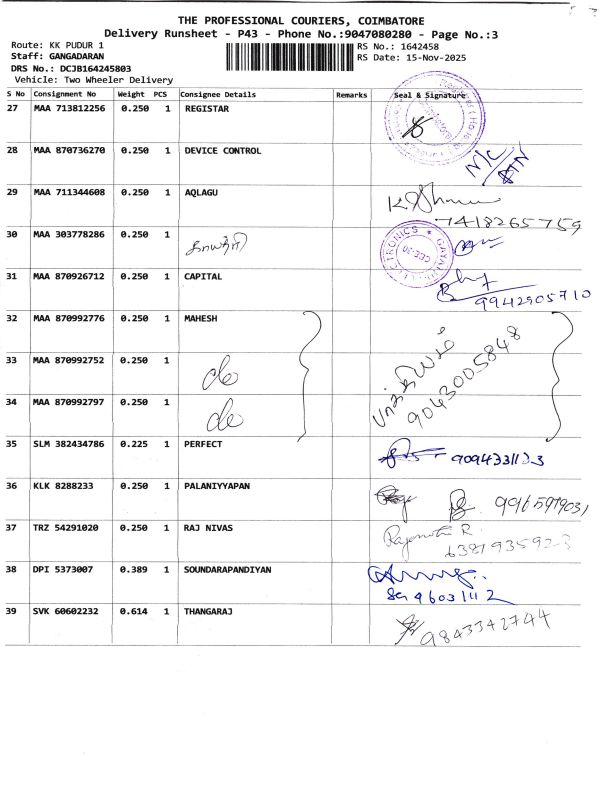 THE PROFESSIONAL COURIERS, COIMBATORE
Delivery Runsheet - P43 - Phone No.:9047080280 - Page No.:3
Route: KK PUDUR 1
Staff: GANGADARAN
DRS No.: DCJB164245803
Vehicle: Two Wheeler Delivery
RS No.: 1642458
RS Date: 15-Nov-2025
S No Consignment No Weight PCS Consignee Details Remarks Seal & Signature
27 MAA 713812256 0.250 1 REGISTAR
28 MAA 870736270 0.250 1 DEVICE CONTROL
N/C
29 MAA 711344608 0.250 1 AQLAGU
7418265759
30 MAA 303778286 0.250 1
31 MAA 870926712 0.250 1 CAPITAL
9942905710
32 MAA 870992776 0.250 1 MAHESH
33 MAA 870992752 0.250 1 do
9043005848
34 MAA 870992797 0.250 1 do
35 SLM 382434786 0.225 1 PERFECT
36 KLK 8288233 0.250 1 PALANIYYAPAN
37 TRZ 54291020 0.250 1 RAJ NIVAS
6381935923
38 DPI 5373007 0.389 1 SOUNDARAPANDIYAN
39 SVK 60602232 0.614 1 THANGARAJ
9843342744